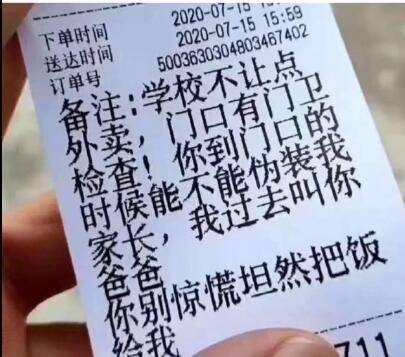 下单时间 2020-07-15 1
送达时间 2020-07-15 15:59
订单号 5003630304803467402
备注:学校不让点
外卖，门口有门卫
检查！你到门口的
时候能不能伪装我
家长，我过去叫你
爸爸
你别惊慌坦然把饭
给我
711